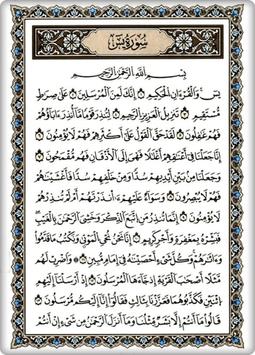 سُورَةُ يسٓ
بِسْمِ اللَّهِ الرَّحْمَٰنِ الرَّحِيمِ
يسٓ وَالْقُرْءَانِ الْحَكِيمِ ۝ إِنَّكَ لَمِنَ الْمُرْسَلِينَ ۝ عَلَىٰ صِرَٰطٍ
مُّسْتَقِيمٍ ۝ تَنزِيلَ الْعَزِيزِ الرَّحِيمِ ۝ لِتُنذِرَ قَوْمًا مَّآ أُنذِرَ ءَابَآؤُهُمْ
فَهُمْ غَٰفِلُونَ ۝ لَقَدْ حَقَّ الْقَوْلُ عَلَىٰٓ أَكْثَرِهِمْ فَهُمْ لَا يُؤْمِنُونَ ۝
إِنَّا جَعَلْنَا فِىٓ أَعْنَٰقِهِمْ أَغْلَٰلًا فَهِىَ إِلَى الْأَذْقَانِ فَهُم مُّقْمَحُونَ ۝
وَجَعَلْنَا مِنۢ بَيْنِ أَيْدِيهِمْ سَدًّا وَمِنْ خَلْفِهِمْ سَدًّا فَأَغْشَيْنَٰهُمْ
فَهُمْ لَا يُبْصِرُونَ ۝ وَسَوَآءٌ عَلَيْهِمْ ءَأَنذَرْتَهُمْ أَمْ لَمْ تُنذِرْهُمْ
لَا يُؤْمِنُونَ ۝ إِنَّمَا تُنذِرُ مَنِ اتَّبَعَ الذِّكْرَ وَخَشِىَ الرَّحْمَٰنَ بِالْغَيْبِ
فَبَشِّرْهُ بِمَغْفِرَةٍ وَأَجْرٍ كَرِيمٍ ۝ إِنَّا نَحْنُ نُحْىِ الْمَوْتَىٰ وَنَكْتُبُ مَا قَدَّمُوا
وَءَاثَٰرَهُمْ وَكُلَّ شَىْءٍ أَحْصَيْنَٰهُ فِىٓ إِمَامٍ مُّبِينٍ ۝ وَاضْرِبْ لَهُم
مَّثَلًا أَصْحَٰبَ الْقَرْيَةِ إِذْ جَآءَهَا الْمُرْسَلُونَ ۝ إِذْ أَرْسَلْنَآ إِلَيْهِمُ
اثْنَيْنِ فَكَذَّبُوهُمَا فَعَزَّزْنَا بِثَالِثٍ فَقَالُوٓا إِنَّآ إِلَيْكُم مُّرْسَلُونَ ۝
قَالُوا مَآ أَنتُمْ إِلَّا بَشَرٌ مِّثْلُنَا وَمَآ أَنزَلَ الرَّحْمَٰنُ مِن شَىْءٍ إِنْ أَنتُمْ